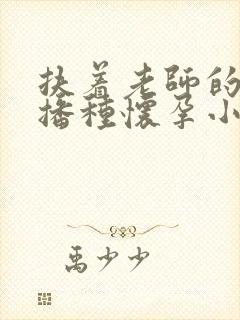 扶着老師的
播種懷孕小
禹少少